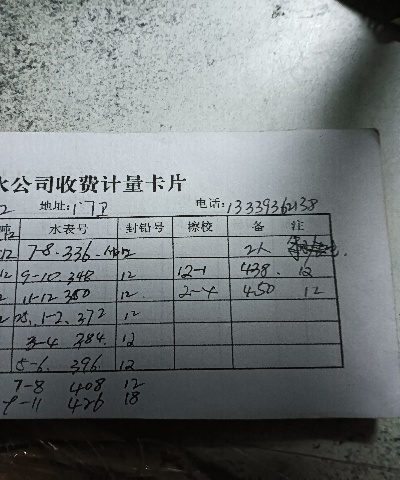 水公司收费计量卡片
2 地址:门卫 电话:13339362138
吨 水表号 封铅号 擦校 备 注
12 7-8. 336. 12 2人
12 9-10. 348 12 12-1 438. 12
2 11-12 360 12 2-4 450 12
25. 1-2. 372 12
3-4 384. 12
5-6. 396. 12
7-8 408 12
9-11 426 18